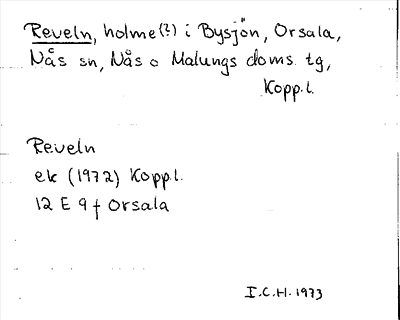 Reveln, holme(?) i Bysjön, Orsala,
Nås sn, Nås o Malungs doms. tg,
Kopp.l.
Reveln
ek (1972) Kopp.l.
12 E 9 f Orsala
I.C.H. 1973